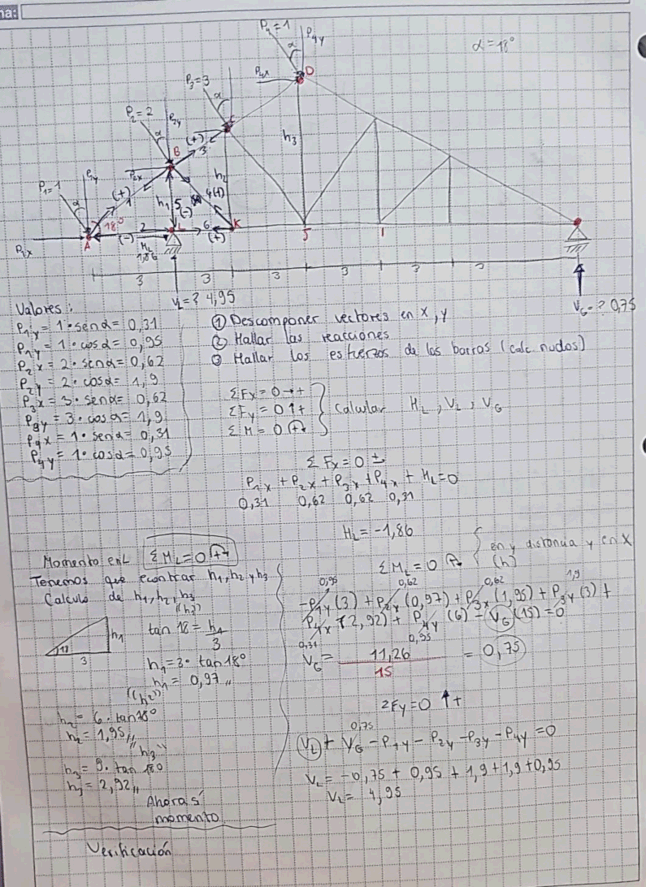 na:
P₄=1
P₄y
α
α=18°
P₄x
D
P₃=3
α
C
h₃
P₂=2
P₂y
α
B
(+)
3
P₂x
h₂
P₁=1
P₁y
α
(+)
1
h₁
5
(-)
4(+)
18°
P₁x
A
2
(-)
L
6
(+)
K
J
I
H_L
1,86
3 3 3 3 3
V_L=? 4,95
V_G=? 0,75
Valores:
P₁x = 1·senα = 0,31
P₁y = 1·cosα = 0,95
P₂x = 2·senα = 0,62
P₂y = 2·cosα = 1,9
P₃x = 3·senα = 0,62
P₃y = 3·cosα = 1,9
P₄x = 1·senα = 0,31
P₄y = 1·cosα = 0,95
① Descomponer vectores en x,y
② Hallar las reacciones
③ Hallar los esfuerzos de las barras (calc. nudos)
ΣFx = 0 →+
ΣFy = 0 ↑+
ΣM = 0
Calcular H_L, V_L, V_G
ΣFx = 0
P₁x + P₂x + P₃x + P₄x + H_L = 0
0,31 0,62 0,62 0,31
H_L = -1,86
Momento en L ΣM_L = 0
Tenemos que econtrar h₁, h₂ y h₃
Calculo de h₁, h₂, h₃
(h₁)
tan 18 = h₁/3
h₁
18
3
h₁ = 3·tan 18°
h₁ = 0,97 ,,
(h₂)
h₂ = 6·tan 18°
h₂ = 1,95 ,,
"h₃"
h₃ = 9·tan 180
h₃ = 2,92 ,,
Ahora sí
momento
Verificación
ΣM_L = 0
en y distancia y en x
(h)
0,95 0,62 0,62 1,9
-P₁y(3) + P₂x(0,97) + P₃x(1,95) + P₃y(3) +
P₄x(2,92) + P₄y(6) - V_G(15) = 0
0,31 0,95
V_G = 11,26/15 = 0,75
ΣFy = 0 ↑+
0,75
V_L + V_G - P₁y - P₂y - P₃y - P₄y = 0
V_L = -0,75 + 0,95 + 1,9 + 1,9 + 0,95
V_L = 4,95